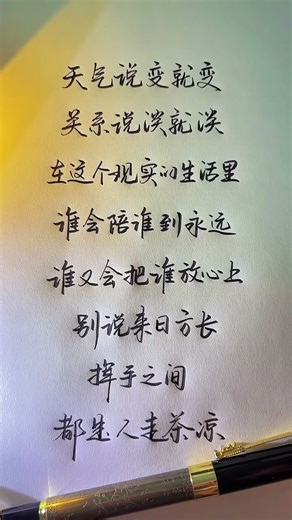 天气说变就变
关系说淡就淡
在这个现实的生活里
谁会陪谁到永远
谁又会把谁放心上
别说来日方长
挥手之间
都是人走茶凉